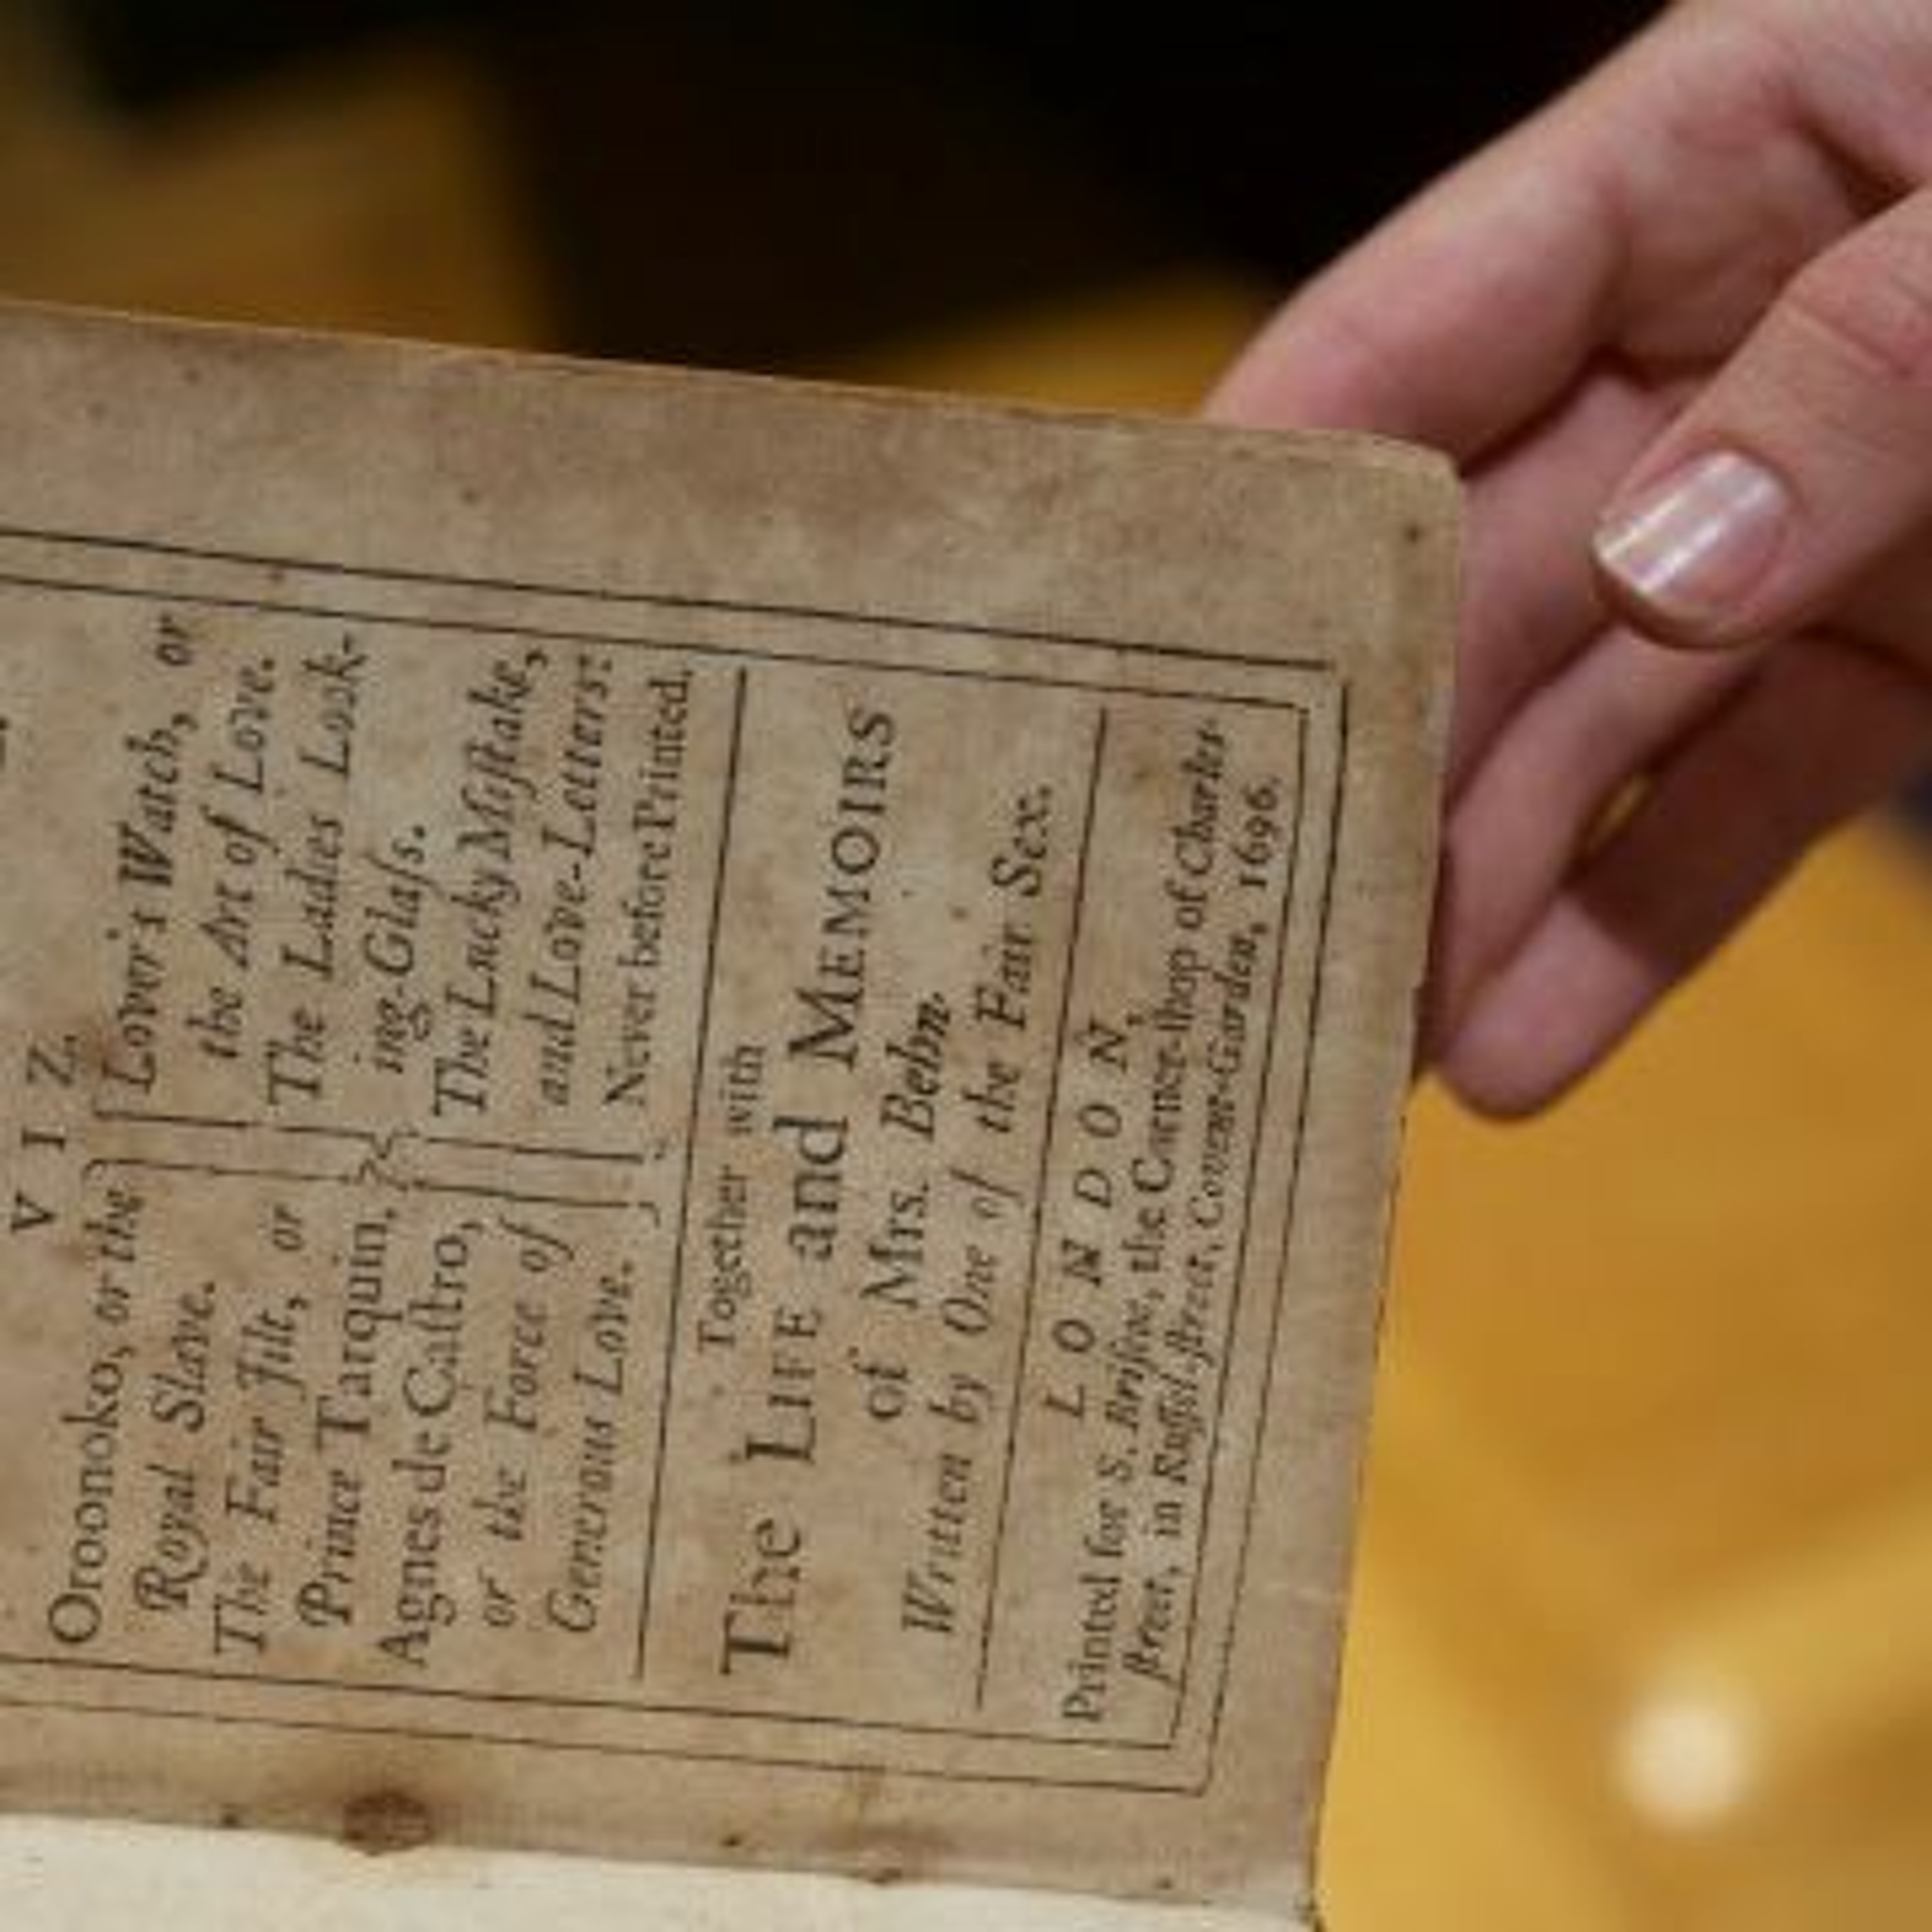 V I Z.
Oroonoko, or the
Royal Slave.
The Fair Jilt, or
Prince Tarquin,
Agnes de Castro,
or the Force of
Generous Love.
Lover's Watch, or
the Art of Love.
The Ladies Look-
ing-Glaſs.
The Lucky Miſtake,
and Love-Letters:
Never before Printed.
Together with
The LIFE and MEMOIRS
of Mrs. Behn.
Written by One of the Fair Sex.
LONDON,
Printed for S. Briſcoe, the Corner-ſhop of Charles-
ſtreet, in Ruſſel-ſtreet, Covent-Garden, 1696.